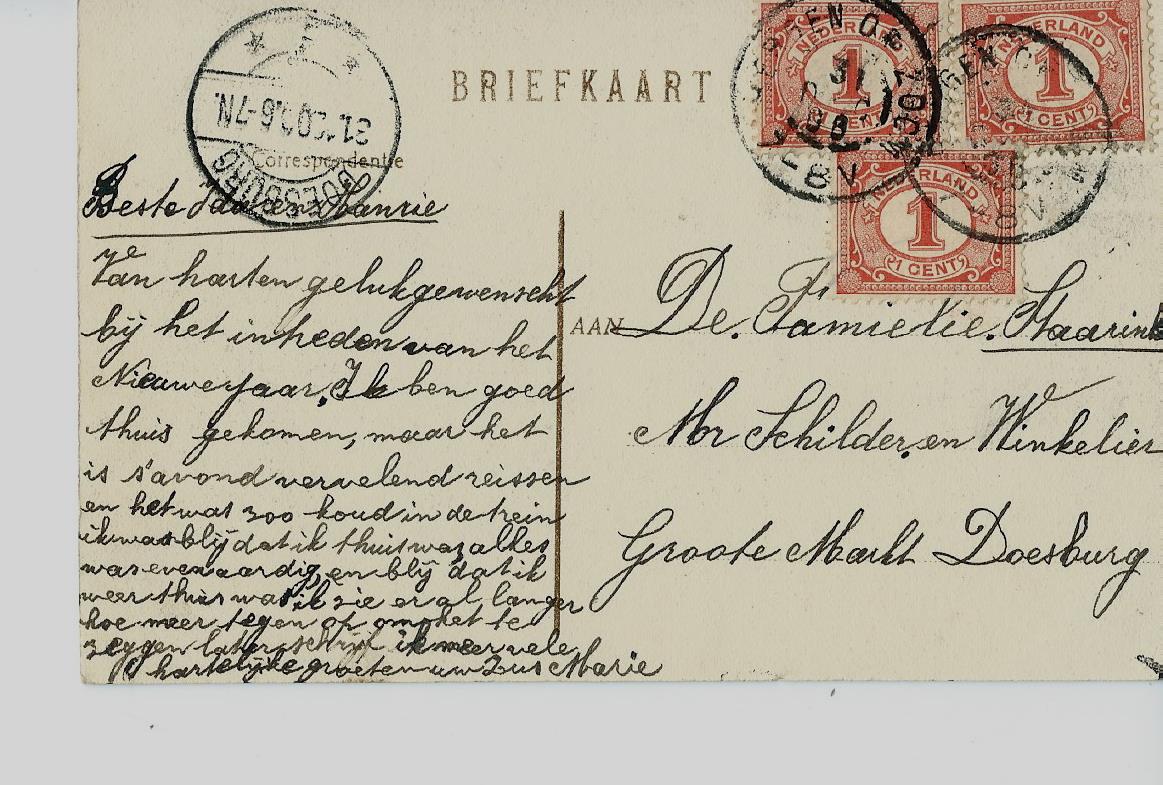 BRIEFKAART
NEDERLAND
1
NEDERLAND
1
1 CENT
NEDERLAND
1
1 CENT
DOESBURG
6-7N.
Correspondentie
Beste
Van harten gelukgewenscht
bij het intreden van het
Nieuwejaar, Ik ben goed
thuis gekomen, maar het
is s'avond vervelend reissen
en het was zoo koud in de trein
ik was blij dat ik thuis was alles
was even aardig, en blij dat ik
weer thuis was ik zie er al langer
hoe meer tegen op om het te
zeggen later schrijf ik meer vele
hartelijke groeten uw Zus Marie
AAN
De. Familie. Staarink
Mr Schilder, en Winkelier
Groote Markt Doesburg